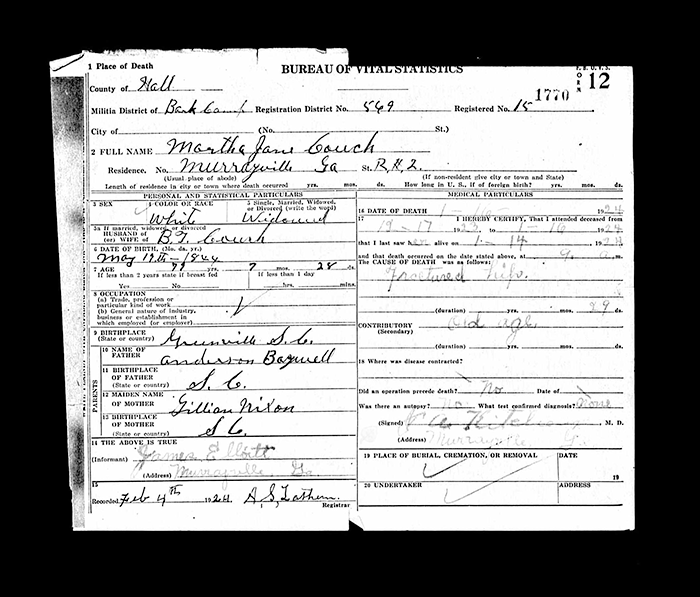 1 Place of Death
BUREAU OF VITAL STATISTICS
FORM 12
County of Hall
1770
Militia District of Bark Camp Registration District No. 569 Registered No. 15
City of (No. St.)
2 FULL NAME Martha Jane Couch
Residence. No. Murrayville Ga St. R,H,2.
(Usual place of abode) (If non-resident give city or town and State)
Length of residence in city or town where death occurred yrs. mos. ds. How long in U. S., if of foreign birth? yrs. mos. ds.
PERSONAL AND STATISTICAL PARTICULARS
3 SEX 4 COLOR OR RACE 5 Single, Married, Widowed, or Divorced (write the word)
White Widowed
5a If married, widowed, or divorced
HUSBAND of
(or) WIFE of B.T. Couch
6 DATE OF BIRTH (Mo. da. yr.)
May 19th - 1844
7 AGE 79 yrs. 7 mos. 28 ds.
If less than 2 years state if breast fed If less than 1 day
hrs. mins.
8 OCCUPATION
(a) Trade, profession or
particular kind of work
(b) General nature of industry,
business or establishment in
which employed (or employer)
9 BIRTHPLACE
(State or country) Greenville S.C.
10 NAME OF
FATHER Anderson Bagwell
11 BIRTHPLACE
OF FATHER
(State or country) S.C.
PARENTS
12 MAIDEN NAME
OF MOTHER Lillian Nixon
13 BIRTHPLACE
OF MOTHER
(State or country) S C.
14 THE ABOVE IS TRUE
(Informant) James Elliott
(Address) Murrayville Ga
15
Recorded Feb 4th 1924 A S, Lathem.
Registrar
MEDICAL PARTICULARS
16 DATE OF DEATH 1 - 1924
17 I HEREBY CERTIFY, That I attended deceased from
12 - 17 1923 to 1 - 16 1924
that I last saw her alive on 1 - 14 1924
and that death occurred on the date stated above, at 9 a.m.
The CAUSE OF DEATH was as follows:
Fractured hip.
(duration) yrs. mos. 29 ds.
CONTRIBUTORY old age
(Secondary)
(duration) yrs. mos. ds.
18 Where was disease contracted?
Did an operation precede death? No Date of
Was there an autopsy? No What test confirmed diagnosis? none
(Signed) M. D.
(Address) Murrayville, Ga.
19 PLACE OF BURIAL, CREMATION, OR REMOVAL DATE
19
20 UNDERTAKER ADDRESS